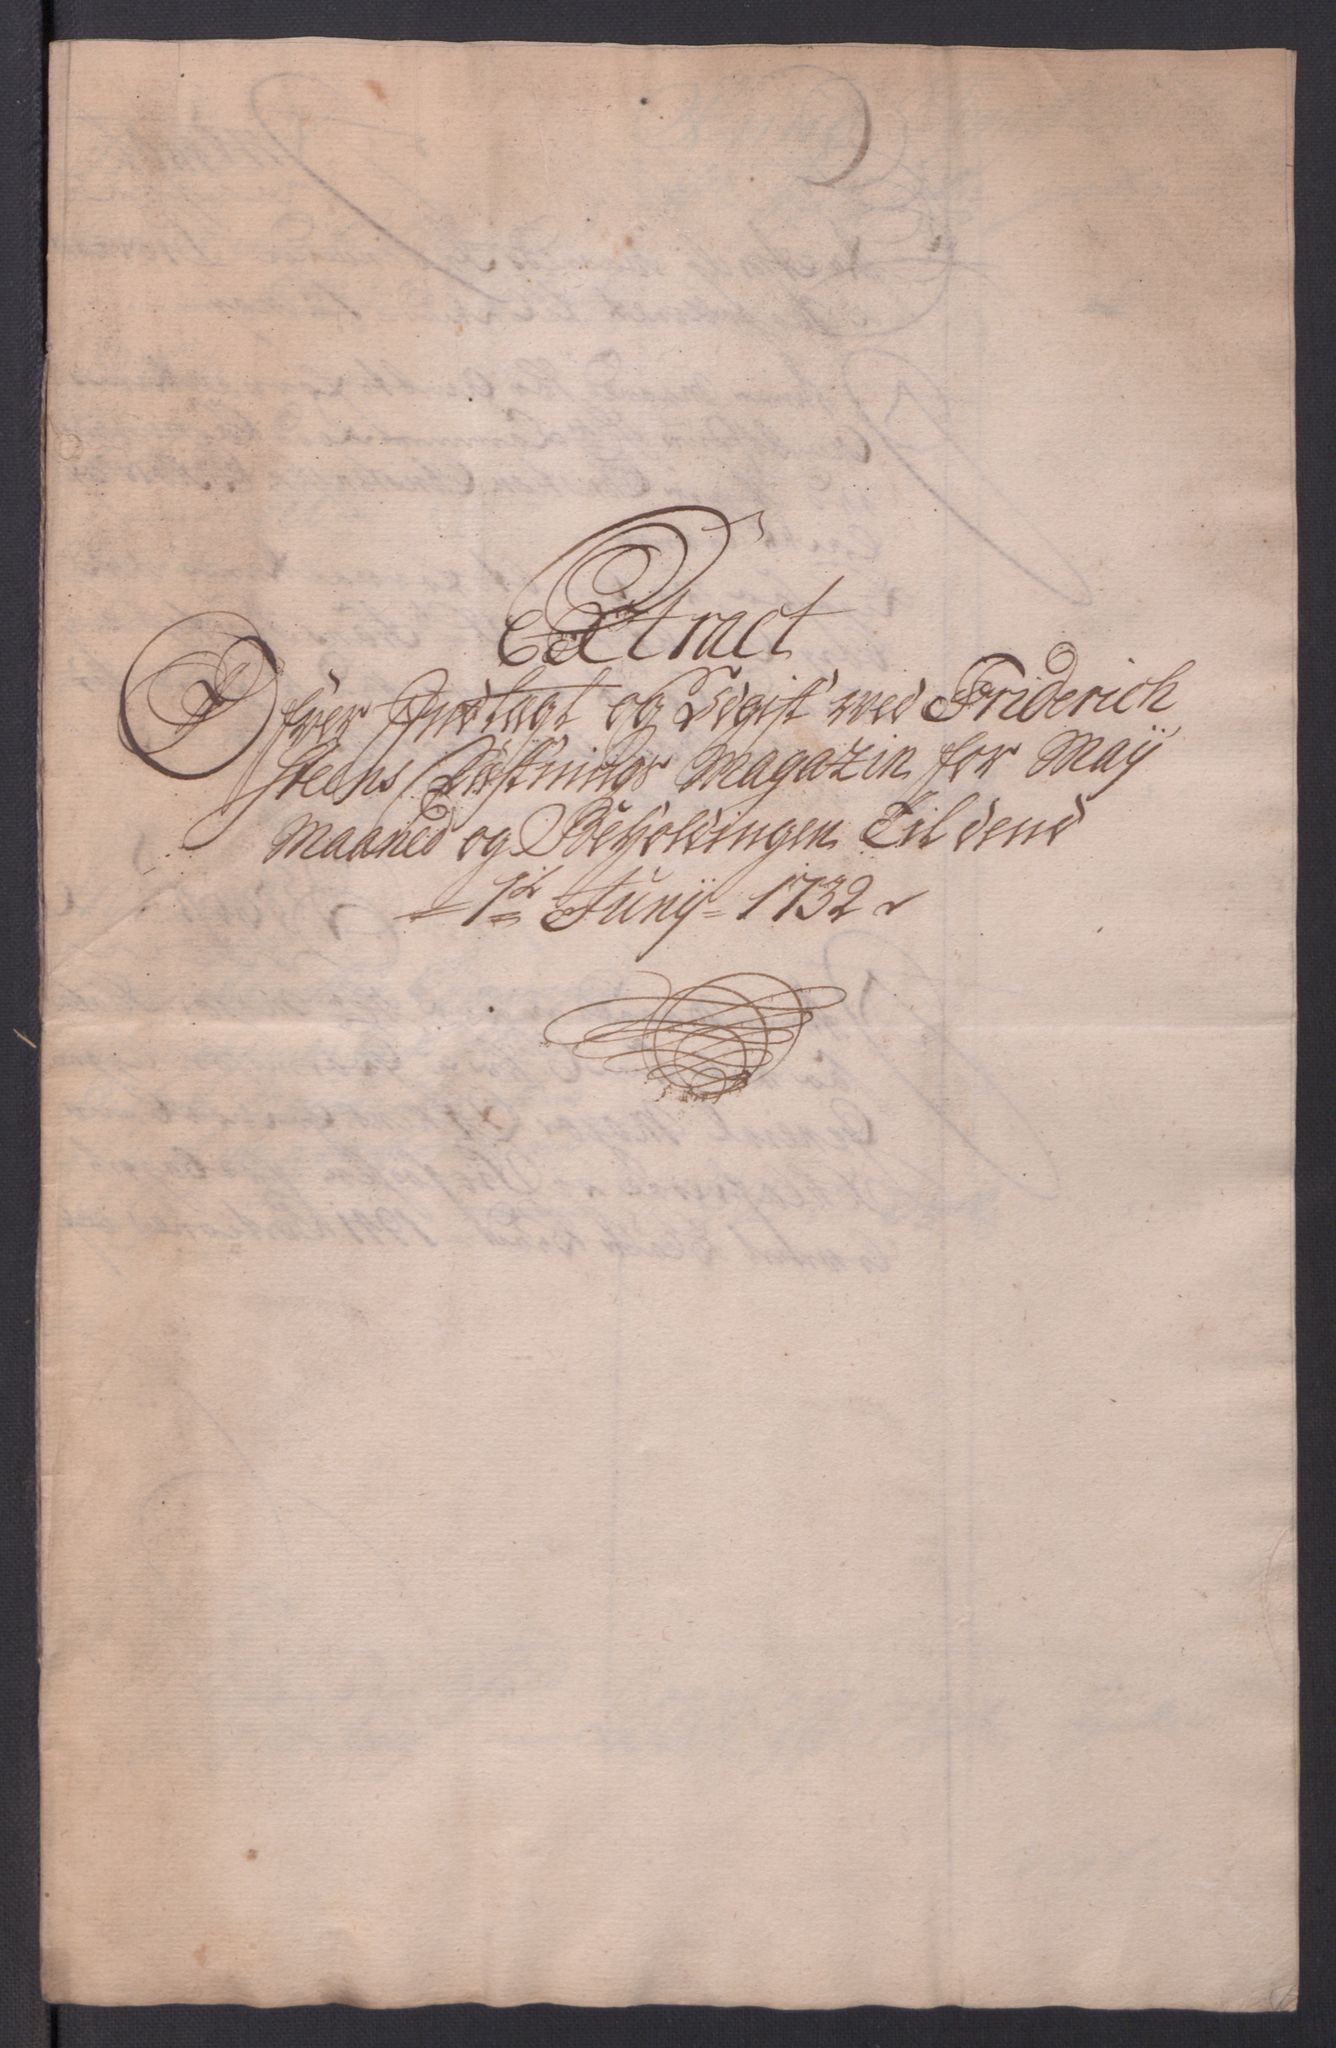 Extract
Ofver Indtægt og Udgift ved Friderich
steens Fæstnings Magazin for Maÿ
Maaned og Beholdingen Til dend
1te Junÿ 1732